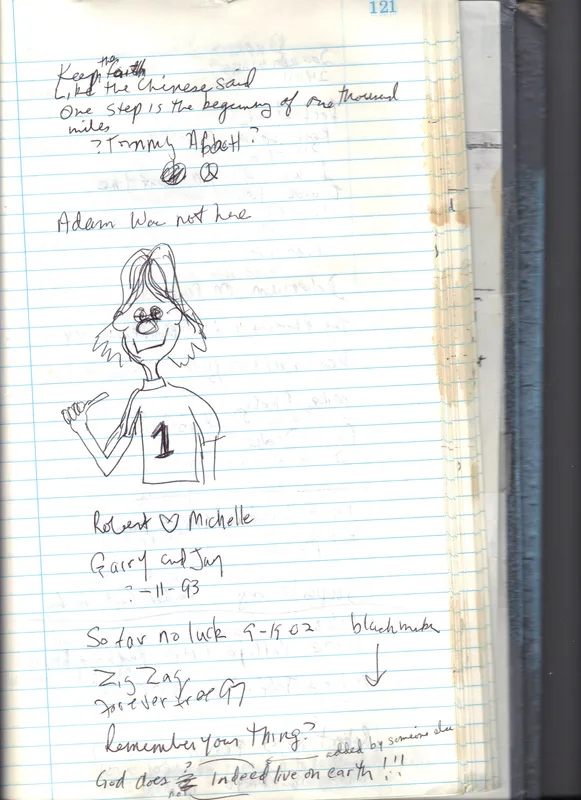 121
Keep the faith
Like the Chinese said
One step is the beginning of one thousand
miles
? Tommy Abbott ?
Adam Was not here
1
Robert ♡ Michelle
Garry and Jay
? -11-93
So far no luck 9-19 02 black marker
Zig Zag
forever free 97
Remember your thing?
added by someone else
God does ? not indeed live on earth!!!